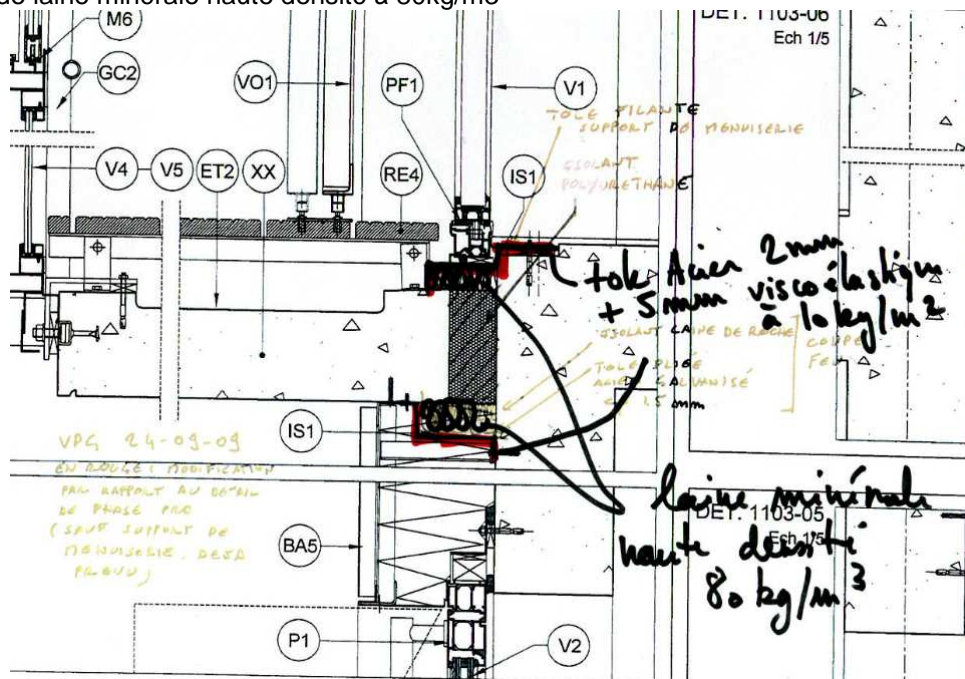 de laine minérale haute densité à 80kg/m3
M6
GC2
VO1
PF1
V1
DET. 1103-06
Ech 1/5
TOLE FILANTE
SUPPORT DE MENUISERIE
ISOLANT
POLYURETHANE
V4
V5
ET2
XX
RE4
IS1
tole Acier 2mm
+ 5mm viscoélastique
à 10kg/m²
ISOLANT LAINE DE ROCHE
TOLE PLIÉE
ACIER GALVANISÉ
1,5 mm
COUPE
FEU
IS1
VPG 24-09-09
EN ROUGE : MODIFICATION
PAR RAPPORT AU DETAIL
DE PHASE PRO
(SAUF SUPPORT DE
MENUISERIE, DEJA
PREVU)
BA5
laine minérale
haute densité
80 kg/m³
DET. 1103-05
Ech 1/5
P1
V2